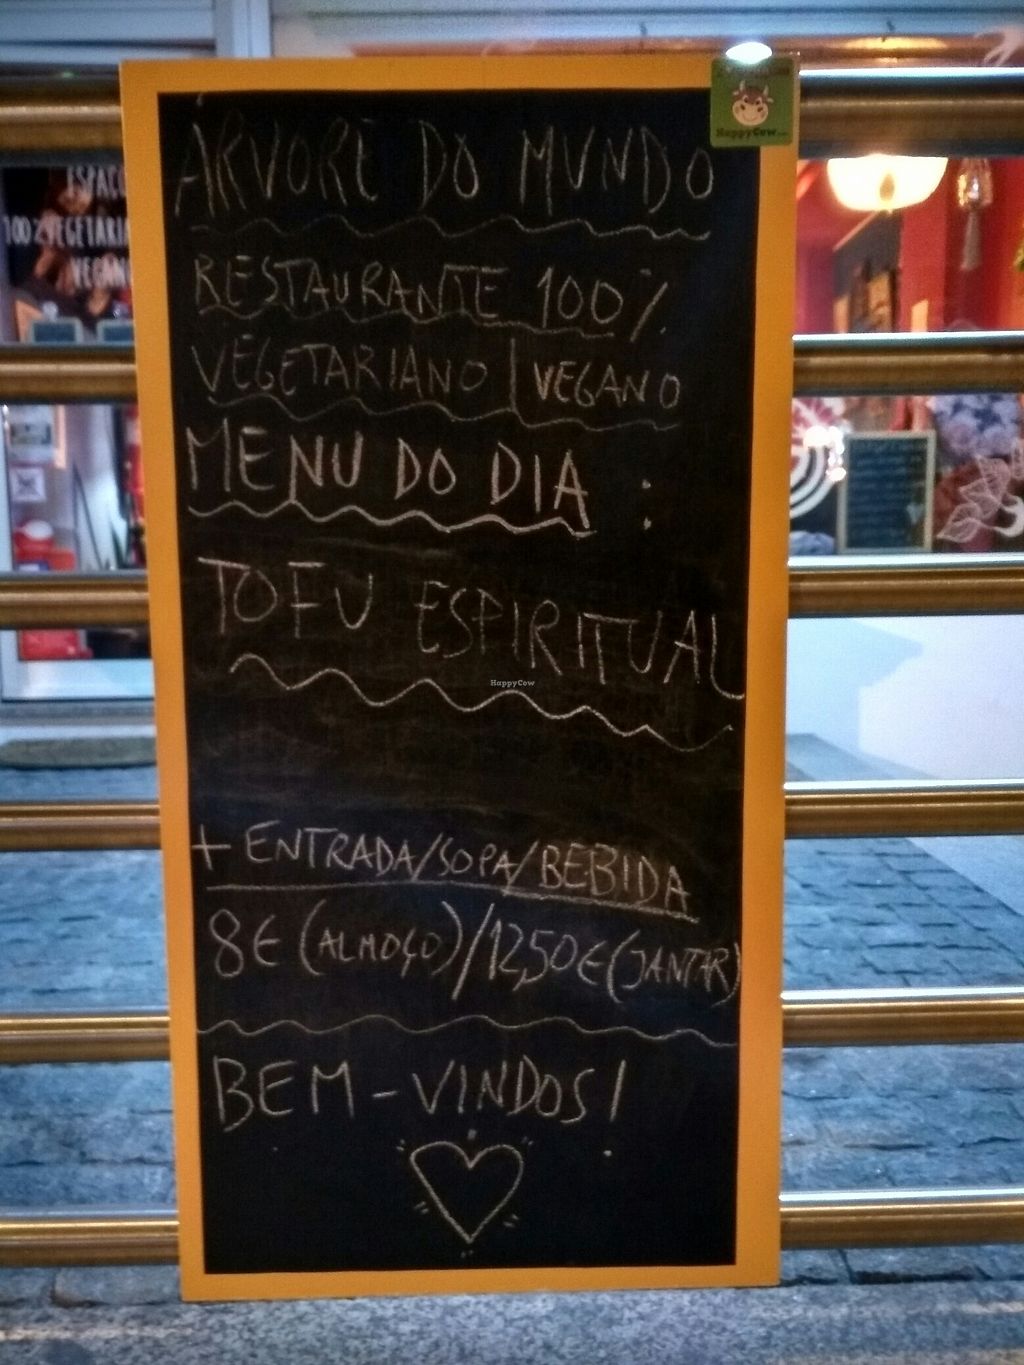 ÁRVORE DO MUNDO
RESTAURANTE 100%
VEGETARIANO | VEGANO
MENU DO DIA :
TOFU ESPIRITUAL
+ ENTRADA/SOPA/BEBIDA
8€ (ALMOÇO)/12,50€ (JANTAR)
BEM-VINDOS!
HappyCow
HappyCow
ESPAÇO
100% VEGETARIA
VEGAN